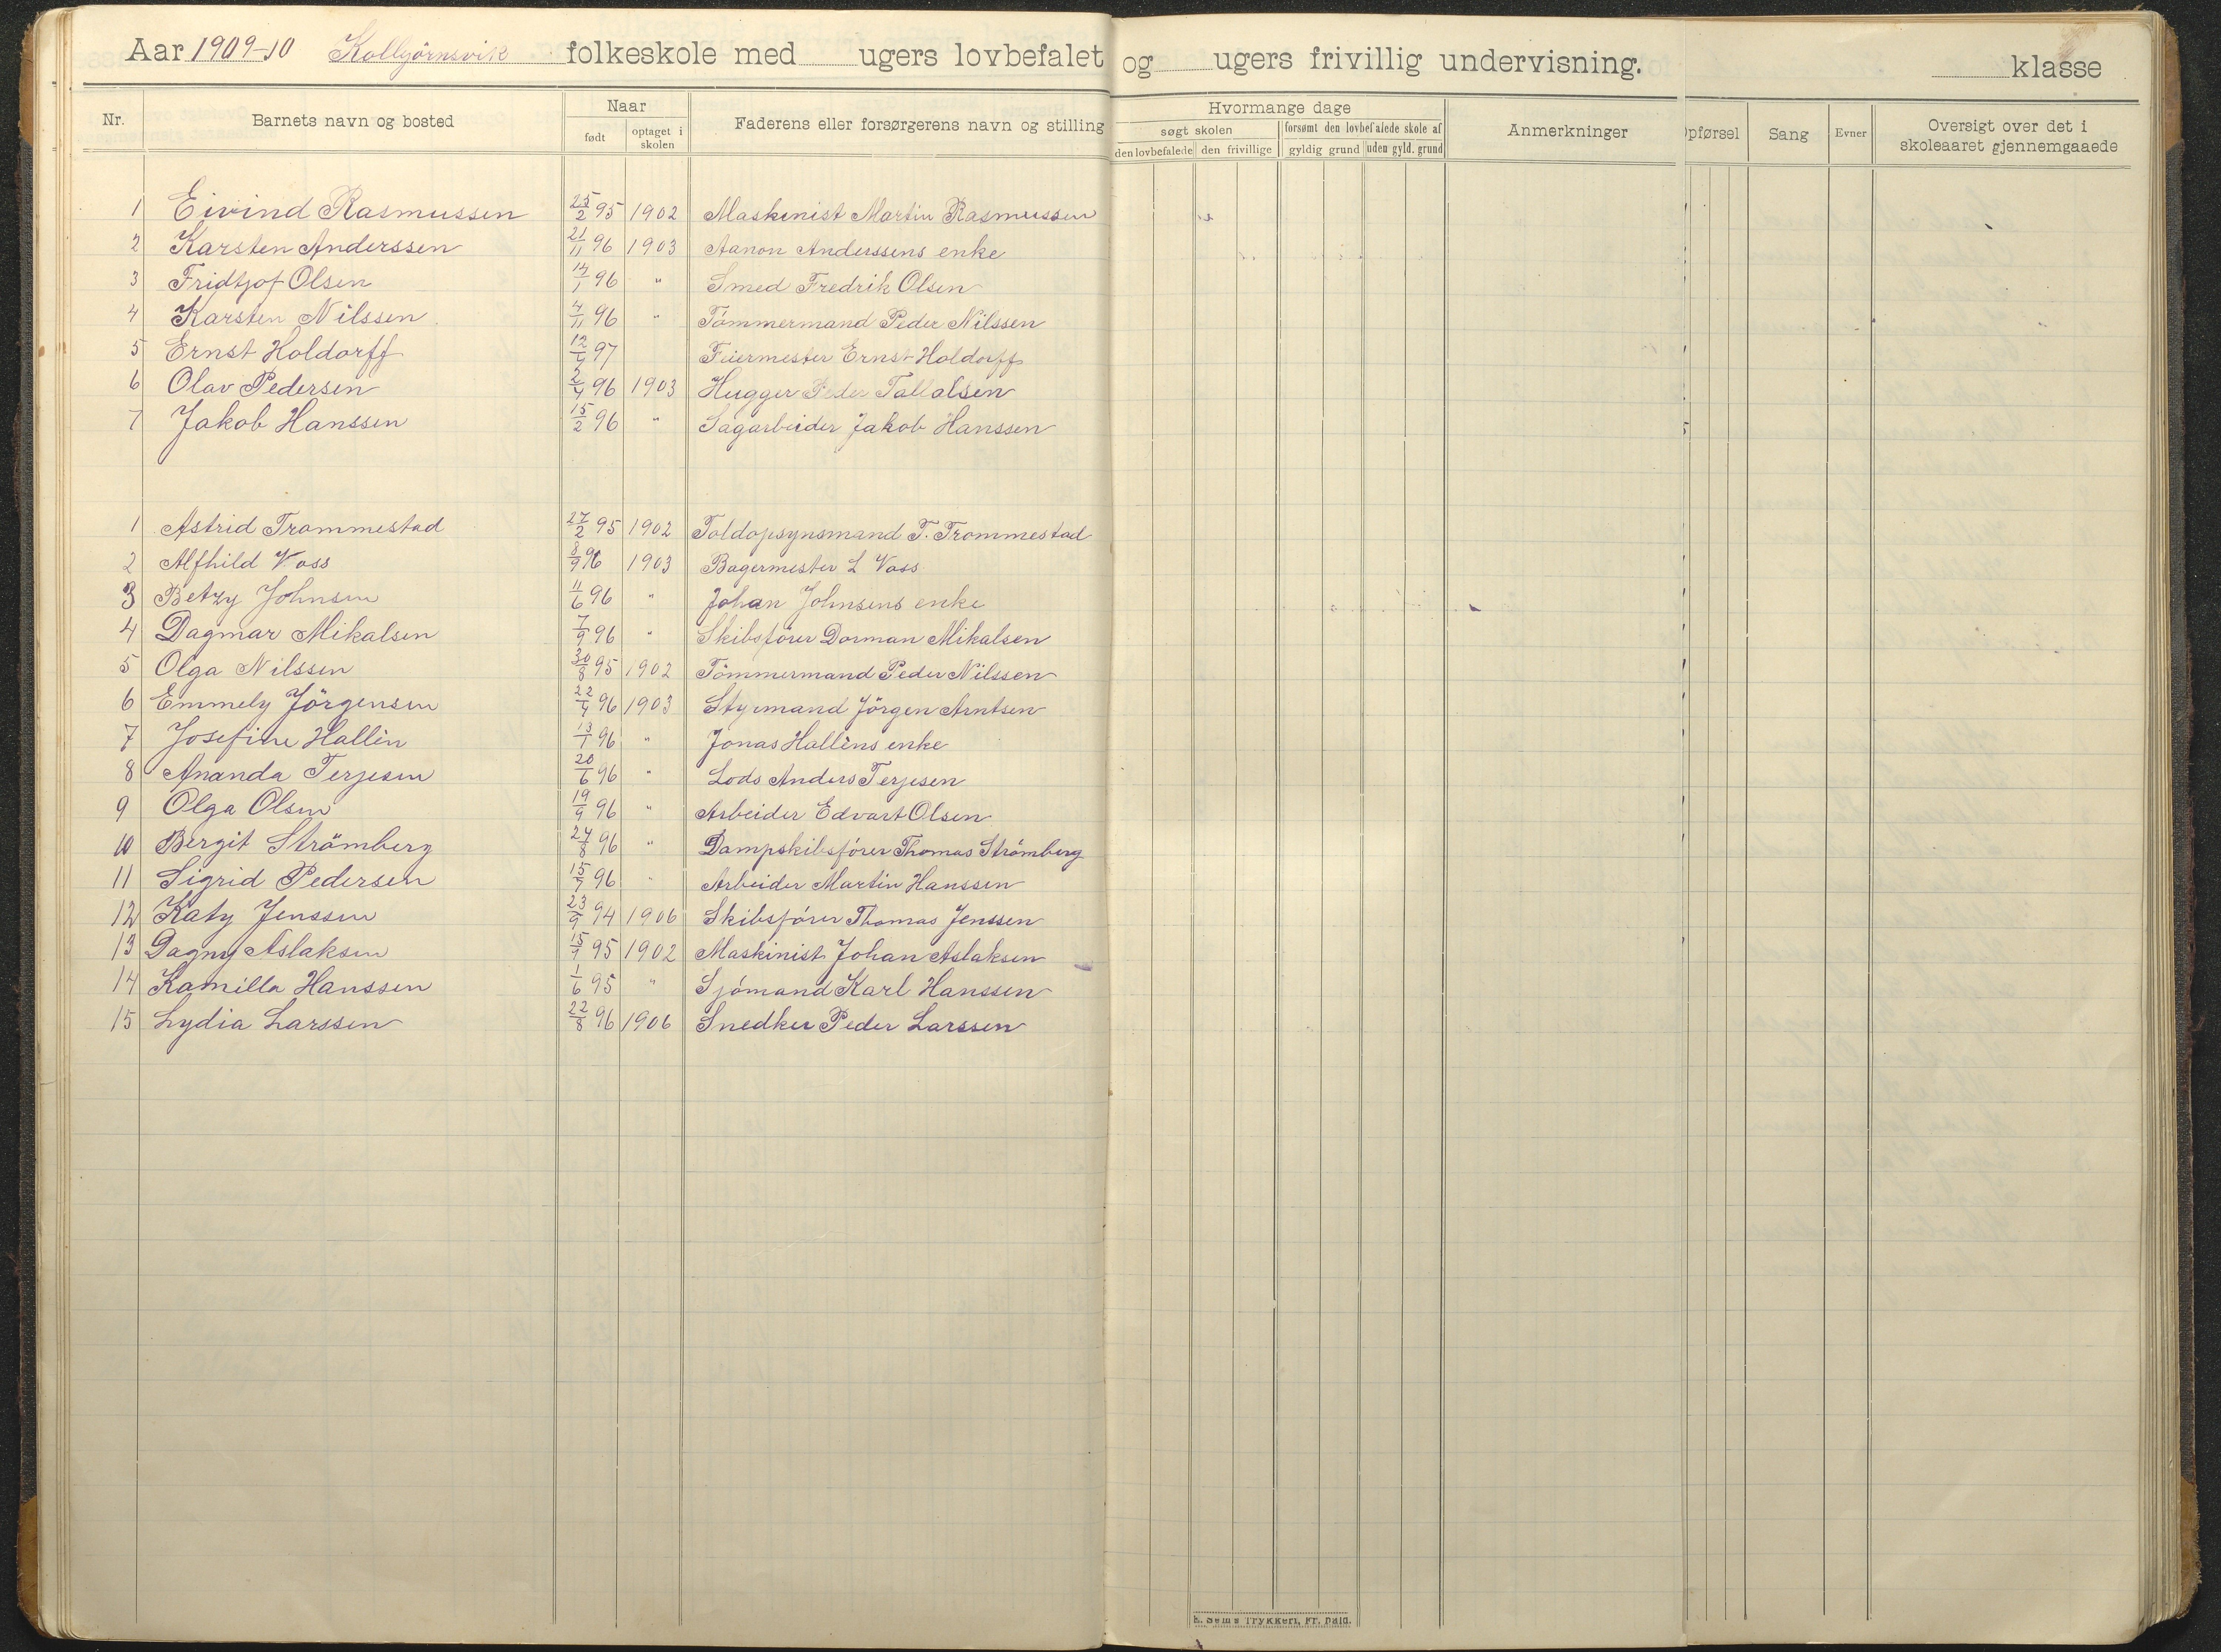 Aar 1909-10 Kolbjörnsvik folkeskole med ugers lovbefalet og ugers frivillig undervisning. klasse
Nr. Barnets navn og bosted Naar født optaget i skolen Faderens eller forsørgerens navn og stilling Hvormange dage søgt skolen den lovbefalede den frivillige forsømt den lovbefalede skole af gyldig grund uden gyld. grund Anmerkninger Opførsel Sang Evner Oversigt over det i skoleaaret gjennemgaaede
1 Eivind Rasmussen 25/2 95 1902 Maskinist Martin Rasmussen
2 Karsten Anderssen 21/11 96 1903 Aanon Anderssens enke
3 Fridtjof Olsen 14/1 96 " Smed Fredrik Olsen
4 Karsten Nilssen 4/11 96 " Tömmermand Peder Nilssen
5 Ernst Holdorff 12/9 97 Feiermester Ernst Holdorff
6 Olav Pedersen 2/4 96 1903 Hugger Peder Tallalsen
7 Jakob Hanssen 15/2 96 " Sagarbeider Jakob Hanssen
1 Astrid Trommestad 27/2 95 1902 Toldopsynsmand T. Trommestad
2 Alfhild Voss 8/9 96 1903 Bagermester L Voss
3 Betzy Johnsen 11/6 96 " Johan Johnsens enke
4 Dagmar Mikalsen 7/9 96 " Skibsförer Dorman Mikalsen
5 Olga Nilssen 30/8 95 1902 Tömmermand Peder Nilssen
6 Emmely Jörgensen 22/4 96 1903 Styrmand Jörgen Arntsen
7 Josefine Hallin 13/1 96 " Jonas Hallins enke
8 Ananda Terjesen 20/6 96 " Lods Anders Terjesen
9 Olga Olsen 19/9 96 " Arbeider Edvart Olsen
10 Bergit Strömberg 24/8 96 " Dampskibsförer Thomas Strömberg
11 Sigrid Pedersen 15/7 96 " Arbeider Martin Hanssen
12 Katy Jenssen 23/9 94 1906 Skibsförer Thomas Jenssen
13 Dagny Aslaksen 15/9 95 1902 Maskinist Johan Aslaksen
14 Kamilla Hanssen 1/6 95 " Sjömand Karl Hanssen
15 Lydia Larssen 22/8 96 1906 Snedker Peder Larssen
E. Sems Trykkeri, Fr. hald.